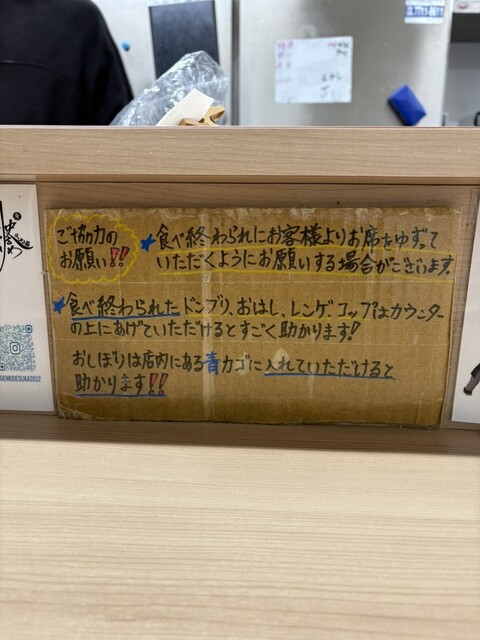 ご協力の
お願い!!
★食べ終わられにお客様よりお席をゆずて
いただくようにお願いする場合がございます。
★食べ終わられたドンブリ、おはし、レンゲ、コップはカウンター
の上にあげていただけるとすごく助かります!
おしぼりは店内にある青カゴに入れていただけると
助かります!!